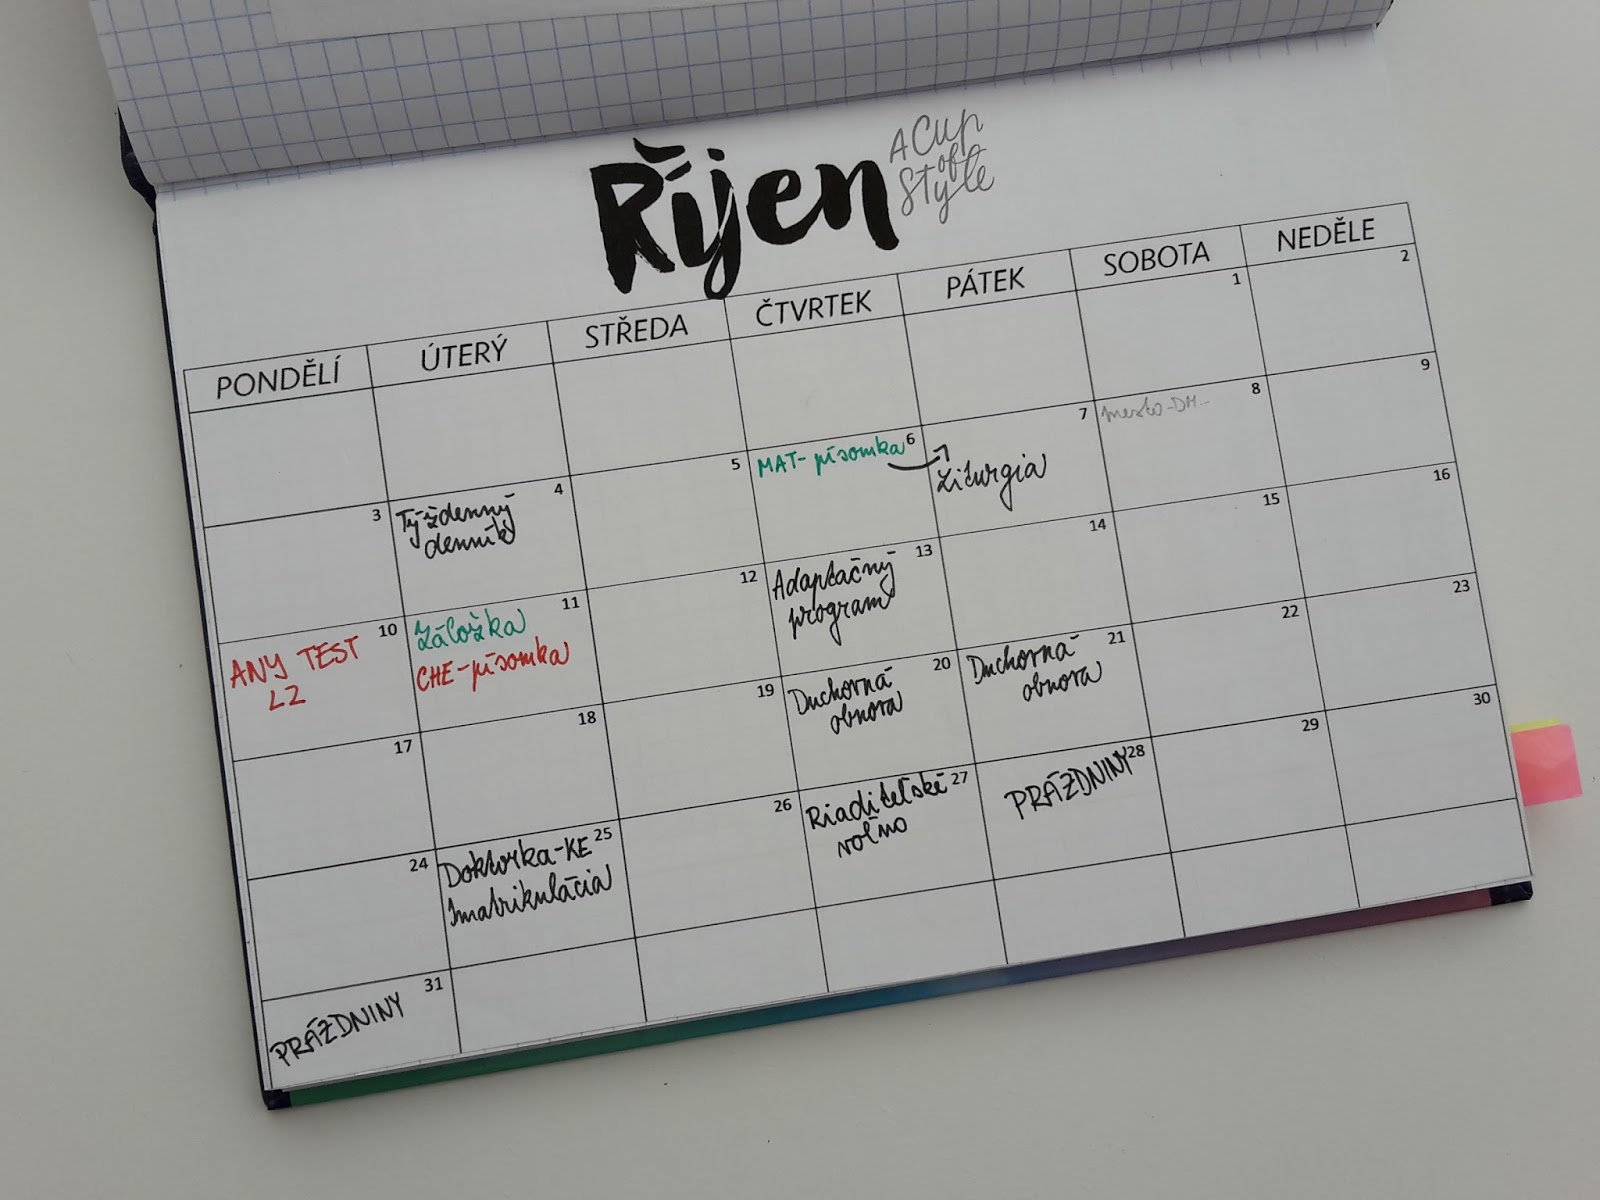 Říjen
A Cup
of
Style
PONDĚLÍ ÚTERÝ STŘEDA ČTVRTEK PÁTEK SOBOTA NEDĚLE
1 2
3 4 5 6 7 8 9
Týždenný
denník
MAT-písomka
Liturgia
mesto-DM...
10 11 12 13 14 15 16
ANJ TEST
L2
Záložka
CHE-písomka
Adaptačný
program
17 18 19 20 21 22 23
Duchovná
obnova
Duchovná
obnova
24 25 26 27 28 29 30
Doktorka-KE
Imatrikulácia
Riaditeľské
voľno
PRÁZDNINY
31
PRÁZDNINY